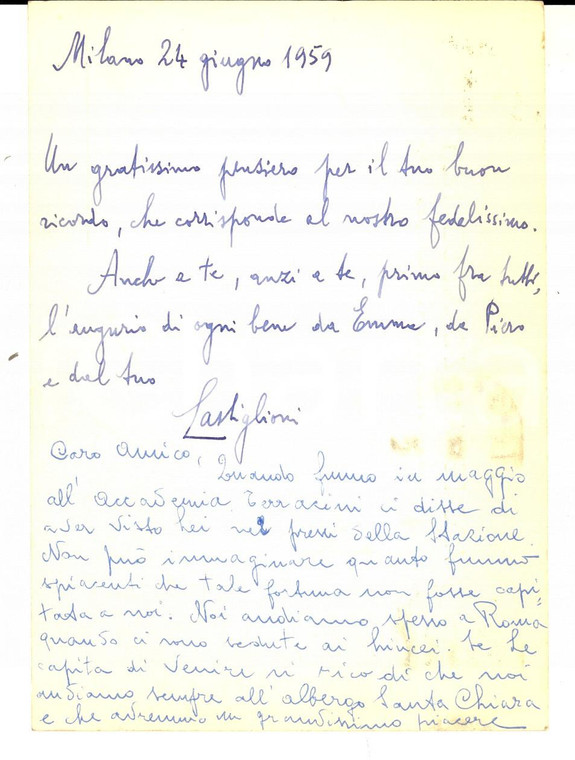 Milano 24 giugno 1959
Un gratissimo pensiero per il tuo buon
ricordo, che corrisponde al nostro fedelissimo.
Anche a te, anzi a te, primo fra tutti,
l'augurio di ogni bene da Emma, da Piero
e dal tuo
Castiglioni
Caro Amico, Quando fummo in maggio
all'Accademia Terracini ci disse di
aver visto Lei nei pressi della Stazione.
Non può immaginare quanto fummo
spiacenti che tale fortuna non fosse capi=
tata a noi. Noi andiamo spesso a Roma
quando ci sono sedute ai Lincei. Se Le
capita di venire si ricordi che noi
andiamo sempre all'albergo Santa Chiara
e che avremmo un grandissimo piacere